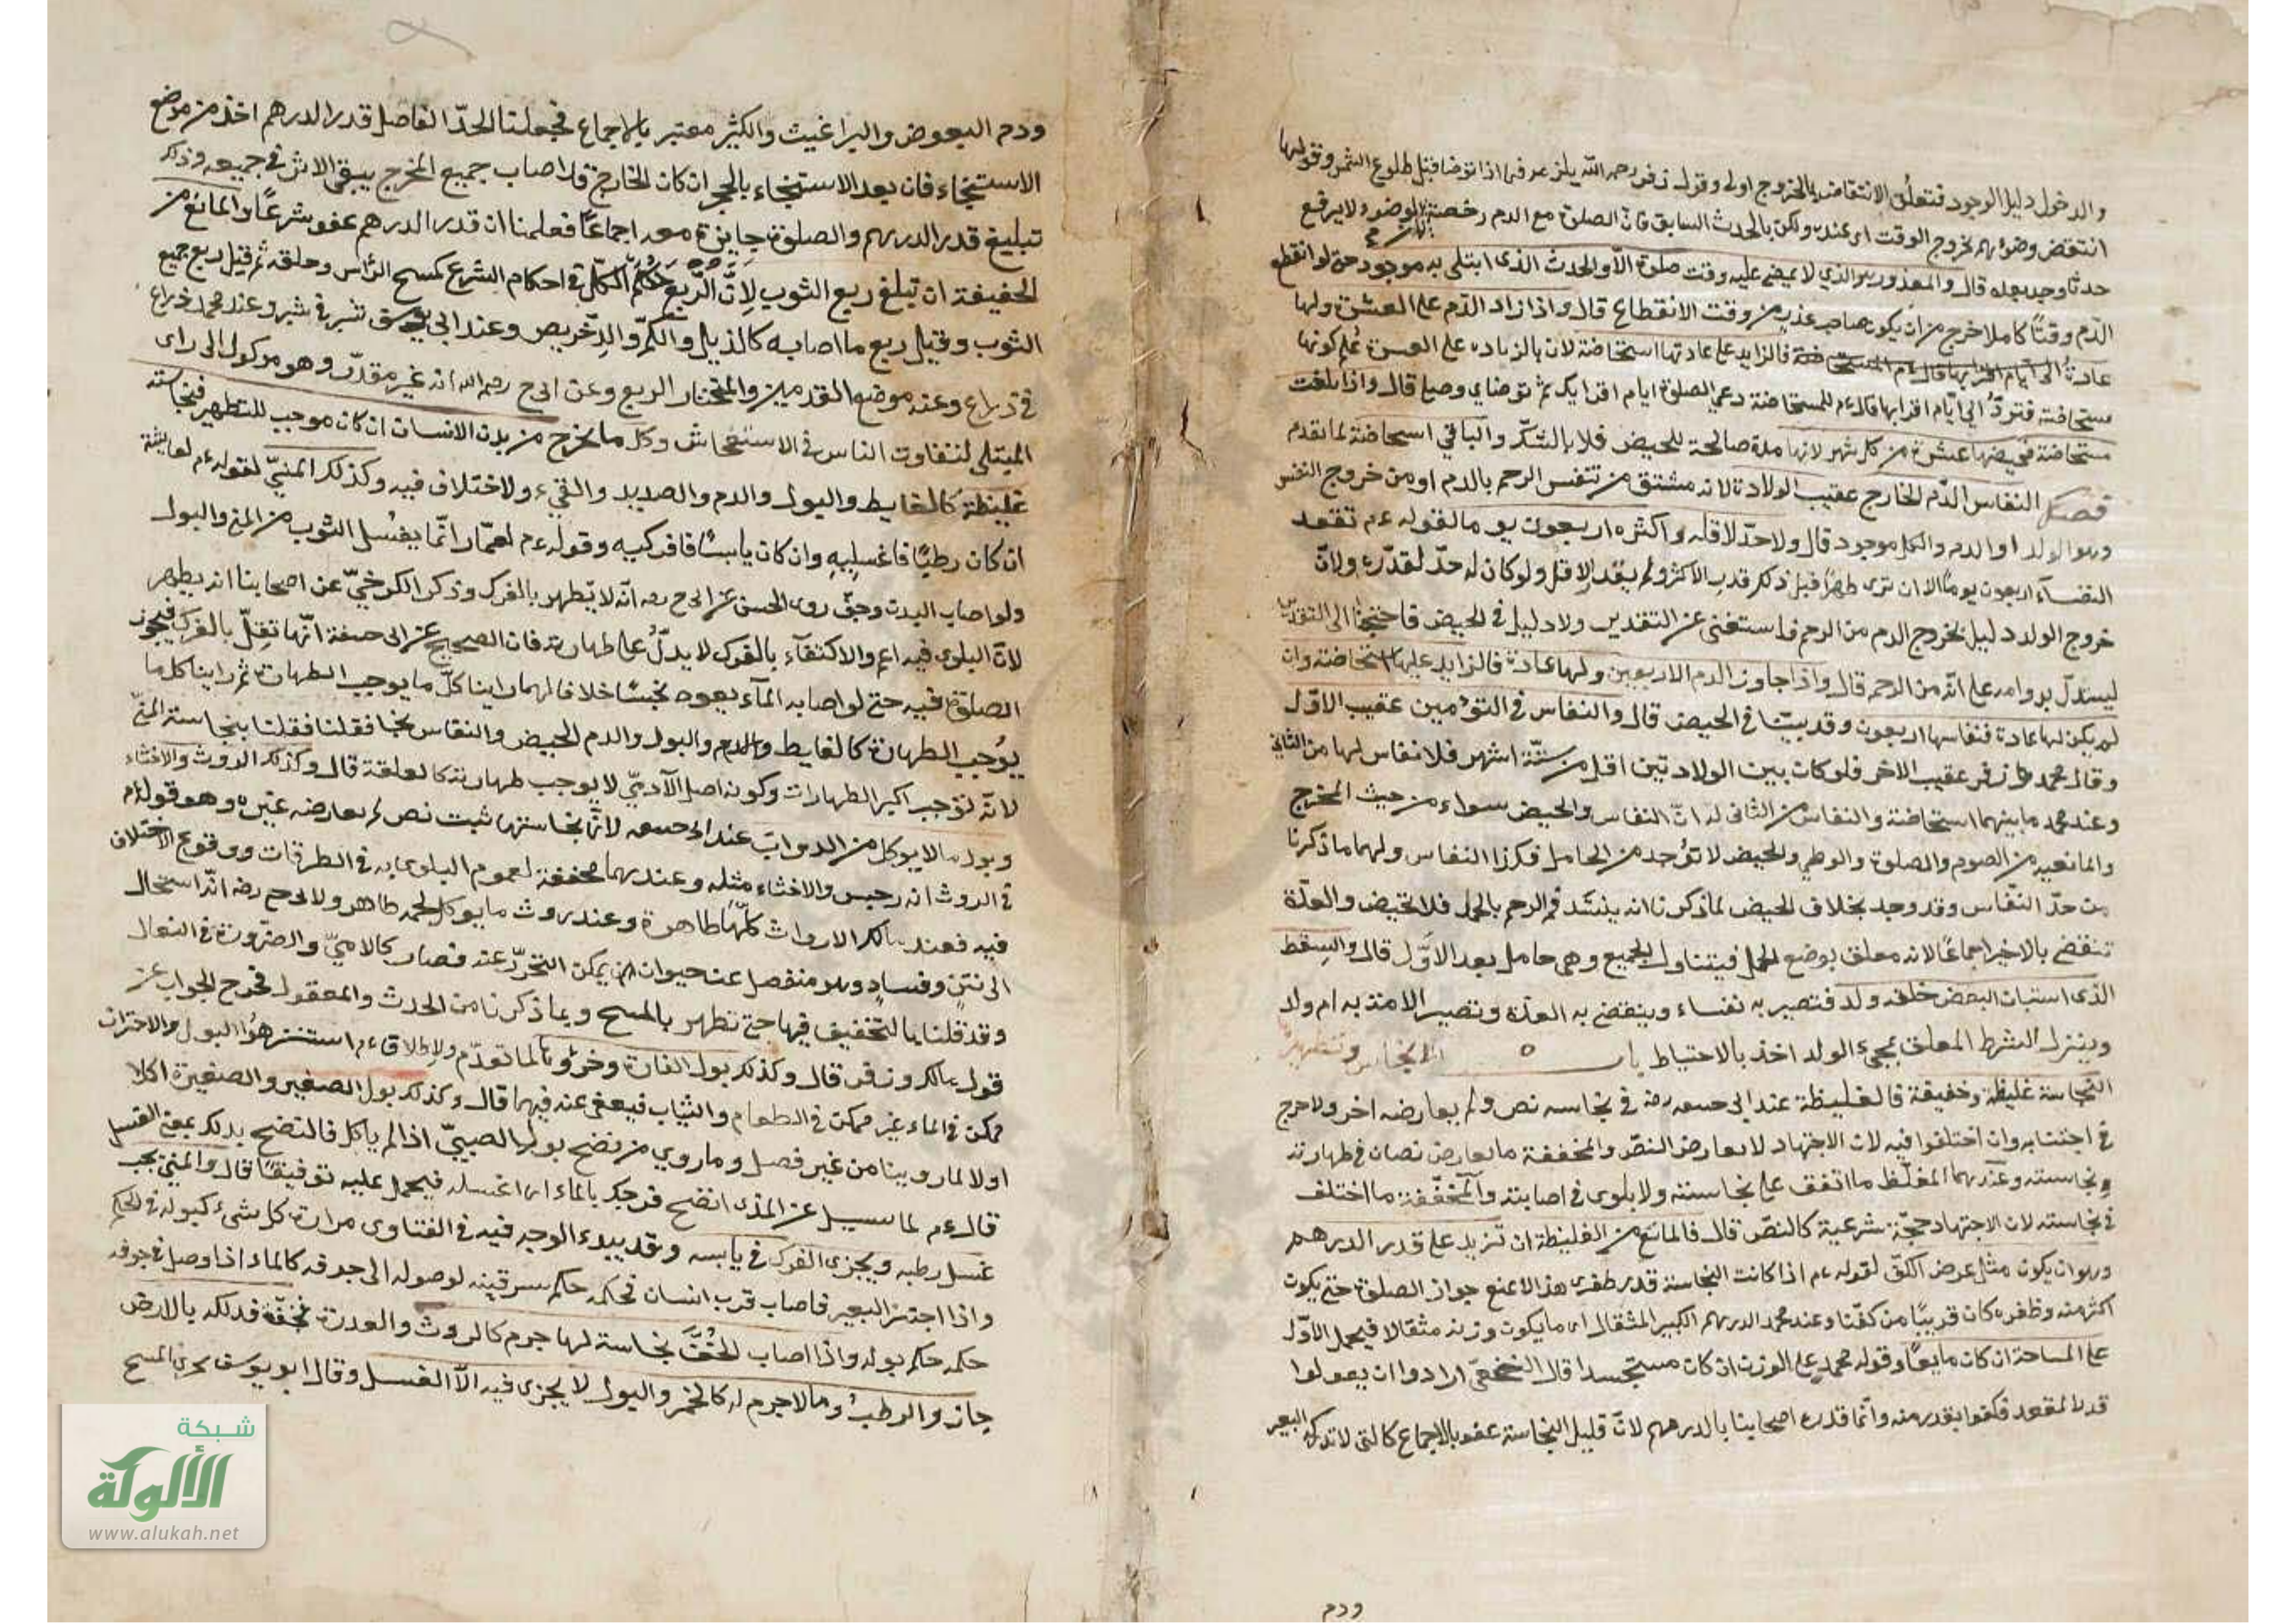 والدخول دليل الوجود فتعلق الانتقاض بالخروج اولى وقول زفر رحمه الله يلزمه فيما اذا توضا قبل طلوع الشمس وقولهما
انتقض وضوءهم بخروج الوقت اى عنده ولكن بالحدث السابق فان الصلوة مع الدم رخصة والوضوء لا يرفع
حدثا وجد بعده قال والمعذور هو الذي لا يمضي عليه وقت صلوة الا والحدث الذى ابتلى به موجود حتى لو انقطع
الدم وقتا كاملا خرج من ان يكون صاحب عذر من وقت الانقطاع قال واذا زاد الدم على العشرة ولها
عادة فالزايد على عادتها استحاضة لان بالزيادة على العشرة علم كونها
مستحاضة فترد الى ايام اقرايها قال ءم للمستحاضة دعي الصلوة ايام اقرايك ثم توضاي وصلي قال واذا بلغت
مستحاضة فحيضها عشرة من كل شهر لانها مدة صالحة للحيض فلا بالشك والباقي استحاضة لما تقدم
فصل النفاس الدم الخارج عقيب الولادة لانه مشتق من تنفس الرحم بالدم او من خروج النفس
وهو الولد او الدم والكل موجود قال ولا حد لاقله واكثره اربعون يوما لقوله ءم تقعد
النفسآء اربعون يوما الا ان ترى طهرا قبل ذلك قدر الاكثر ولم يقدر الاقل ولو كان له حد لقدره ولان
خروج الولد دليل بخروج الدم من الرحم فاستغنى عن التقدير ولا دليل في الحيض فاحتجنا الى التقدير
ليستدل بدوامه على انه من الرحم قال واذا جاوز الدم الاربعين ولها عادة فالزايد عليها استحاضة وان
لم يكن لها عادة فنفاسها اربعون وقد بينا فى الحيض قال والنفاس فى التوءمين عقيب الاول
وقال محمد وزفر عقيب الاخر فلو كان بين الولادتين اقل من ستة اشهر فلا نفاس لها من الثاني
وعند محمد ما بينهما استحاضة والنفاس من الثانى له ان النفاس والحيض سواء من حيث المخرج
والمانعيه من الصوم والصلوة والوطي والحيض لا توجد من الحامل فكذا النفاس ولهما ما ذكرنا
من حد النفاس وقد وجد بخلاف الحيض لما ذكرنا انه ينسد فم الرحم بالحمل فلا تحيض والعدة
تنقضي بالاخير اجماعا لانه معلق بوضع الحمل فيتناول الجميع وهى حامل بعد الاول قال والسقط
الذى استبان البعض خلقه ولد فتصير به نفساء وينقضي به العدة وتصير الامة به ام ولد
وينزل الشرط المعلق بمجيء الولد اخذ بالاحتياط باب الانجاس وتطهيرها
النجاسة غليظة وخفيفة فالغليظة عند ابى حنيفة رضه فى نجاسه نص ولم يعارضه اخر ولا حرج
فى اجتنابه وان اختلفوا فيه لان الاجتهاد لا يعارض النص والمخففة ما يعارض نصان فى طهارته
ونجاسته وعندهما المغلظ ما اتفق على نجاسته ولا بلوى فى اصابته والمخففة ما اختلف
فى نجاسته لان الاجتهاد حجة شرعية كالنص قال فالمانع من الغليظة ان تزيد على قدر الدرهم
وهو ان يكون مثل عرض الكف لقوله ءم اذا كانت النجاسة قدر ظفرى هذا لا تمنع جواز الصلوة حتى يكون
اكثر منه وظفره كان قريبا من كفنا وعند محمد الدرهم الكبير المثقال اى ما يكون وزنه مثقالا فيحمل الاول
على المساحة ان كان مايعا وقوله محمد على الوزن ان كان مستجسدا قال النخعي ارادوا ان يقولوا
قدر المقعد فكنوا بقدر منه وانما قدره اصحابنا بالدرهم لان قليل النجاسة عفو بالاجماع كالتى لا تدركه البصر
ودم
ودم البعوض والبراغيث والكثير معتبر بالاجماع فجعلنا الحد الفاصل قدر الدرهم اخذ من موضع
الاستنجاء فان بعد الاستنجاء بالحجر ان كان الخارج قد اصاب جميع المخرج يبقى الاثر فى جميعه وذلك
تبليغ قدر الدرهم والصلوة جايزة معه اجماعا فعلمنا ان قدر الدرهم عفو شرعا والمانع من
الخفيفة ان تبلغ ربع الثوب لان الربع حكم الكل فى احكام الشرع كمسح الراس وحلقه ثم قيل ربع جميع
الثوب وقيل ربع ما اصابه كالذيل والكم والدخريص وعند ابى يوسف شبر فى شبر وعند محمد ذراع
فى ذراع وعنه موضع القدمين والمختار الربع وعن ابى ح رحمه الله انه غير مقدر وهو موكول الى راى
المبتلى لتفاوت الناس فى الاستفحاش وكل ما يخرج من بدن الانسان ان كان موجب للتطهير فنجاسته
غليظة كالغايط والبول والدم والصديد والقيء ولا ختلاف فيه وكذلك المني لقوله ءم لعايشة
ان كان رطبا فاغسليه وان كان يابسا فافركيه وقوله ءم لعمار انما يغسل الثوب من المنى والبول
ولو اصاب البدن وجف روى الحسن عن ابى ح رحه انه لا يطهر بالفرك وذكر الكرخي عن اصحابنا انه يطهر
لان البلوى فيه اعم والاكتفآء بالفرك لا يدل على طهارته فان الصحيح عن ابى حنيفة انها تقل بالفرك فيجوز
الصلوة فيه حتى لو اصابه المآء يعود نجسا خلافا لهما راينا كل ما يوجب الطهارة ثم راينا كل ما
يوجب الطهارة كالغايط والدم والبول والدم الحيض والنفاس نجسا فقلنا فقلنا بنجاسة المنى
لانه توجب اكبر الطهارات وكونه اصل الآدمي لا يوجب طهارته كالعلقة قال وكذلك الروث والاخثاء
وبول ما لا يوكل من الدواب عند ابى حنيفه لان نجاستها ثبت نص لم يعارضه غيره وهو قوله ءم
فى الروث انه رجس والاخثاء مثله وعندهما مخففة لعموم البلوى به فى الطرقات ووقوع الاختلاف
فيه فعند مالك الارواث كلها طاهرة وعنده روث ما يوكل لحمه طاهر ولابى ح رضه انه استحال
الى نتن وفساد وهو منفصل عن حيوان يمكن التحرز عنه فصار كالادمي والضرورة فى النعال
وقد قلنا بالتخفيف فيها حتى تطهر بالمسح وبما ذكرنا من الحدث والمعقول فخرج الجواب عن
قول مالك وزفر قال وكذلك بول الفارة وخرؤها لما تقدم ولاطلاق ءم استنزهوا البول والاحتراز
ممكن فى الماء غير ممكن فى الطعام والثياب فيعفى عنه فيهما قال وكذلك بول الصغير والصغيرة اكلا
اولا لما روينا من غير فصل وما روي من نضح بول الصبي اذا لم ياكل فالنضح يذكر بمعنى الغسل
قال ءم لما سيل عن المذى انضح فرجك بالماء اى اغسله فيحمل عليه توفيقا قال والمني يجب
غسل رطبه ويجزى الفرك فى يابسه وقد يبدء الوجه فيه فى الفتاوى مرارة كل شىء كبوله فى الحكم
واذا اجتز البعير فاصاب قرب انسان فحكمه حكم سرقينه لوصوله الى جوفه كالماء اذا وصل فى جوفه
حكمه حكم بوله واذا اصاب الخف نجاسة لها جرم كالروث والعذرة فجفت فدلكه بالارض
جاز والرطب وما لا جرم له كالخمر والبول لا يجزى فيه الا الغسل وقال ابو يوسف يجزى المسح
شبكة
الألوكة
www.alukah.net